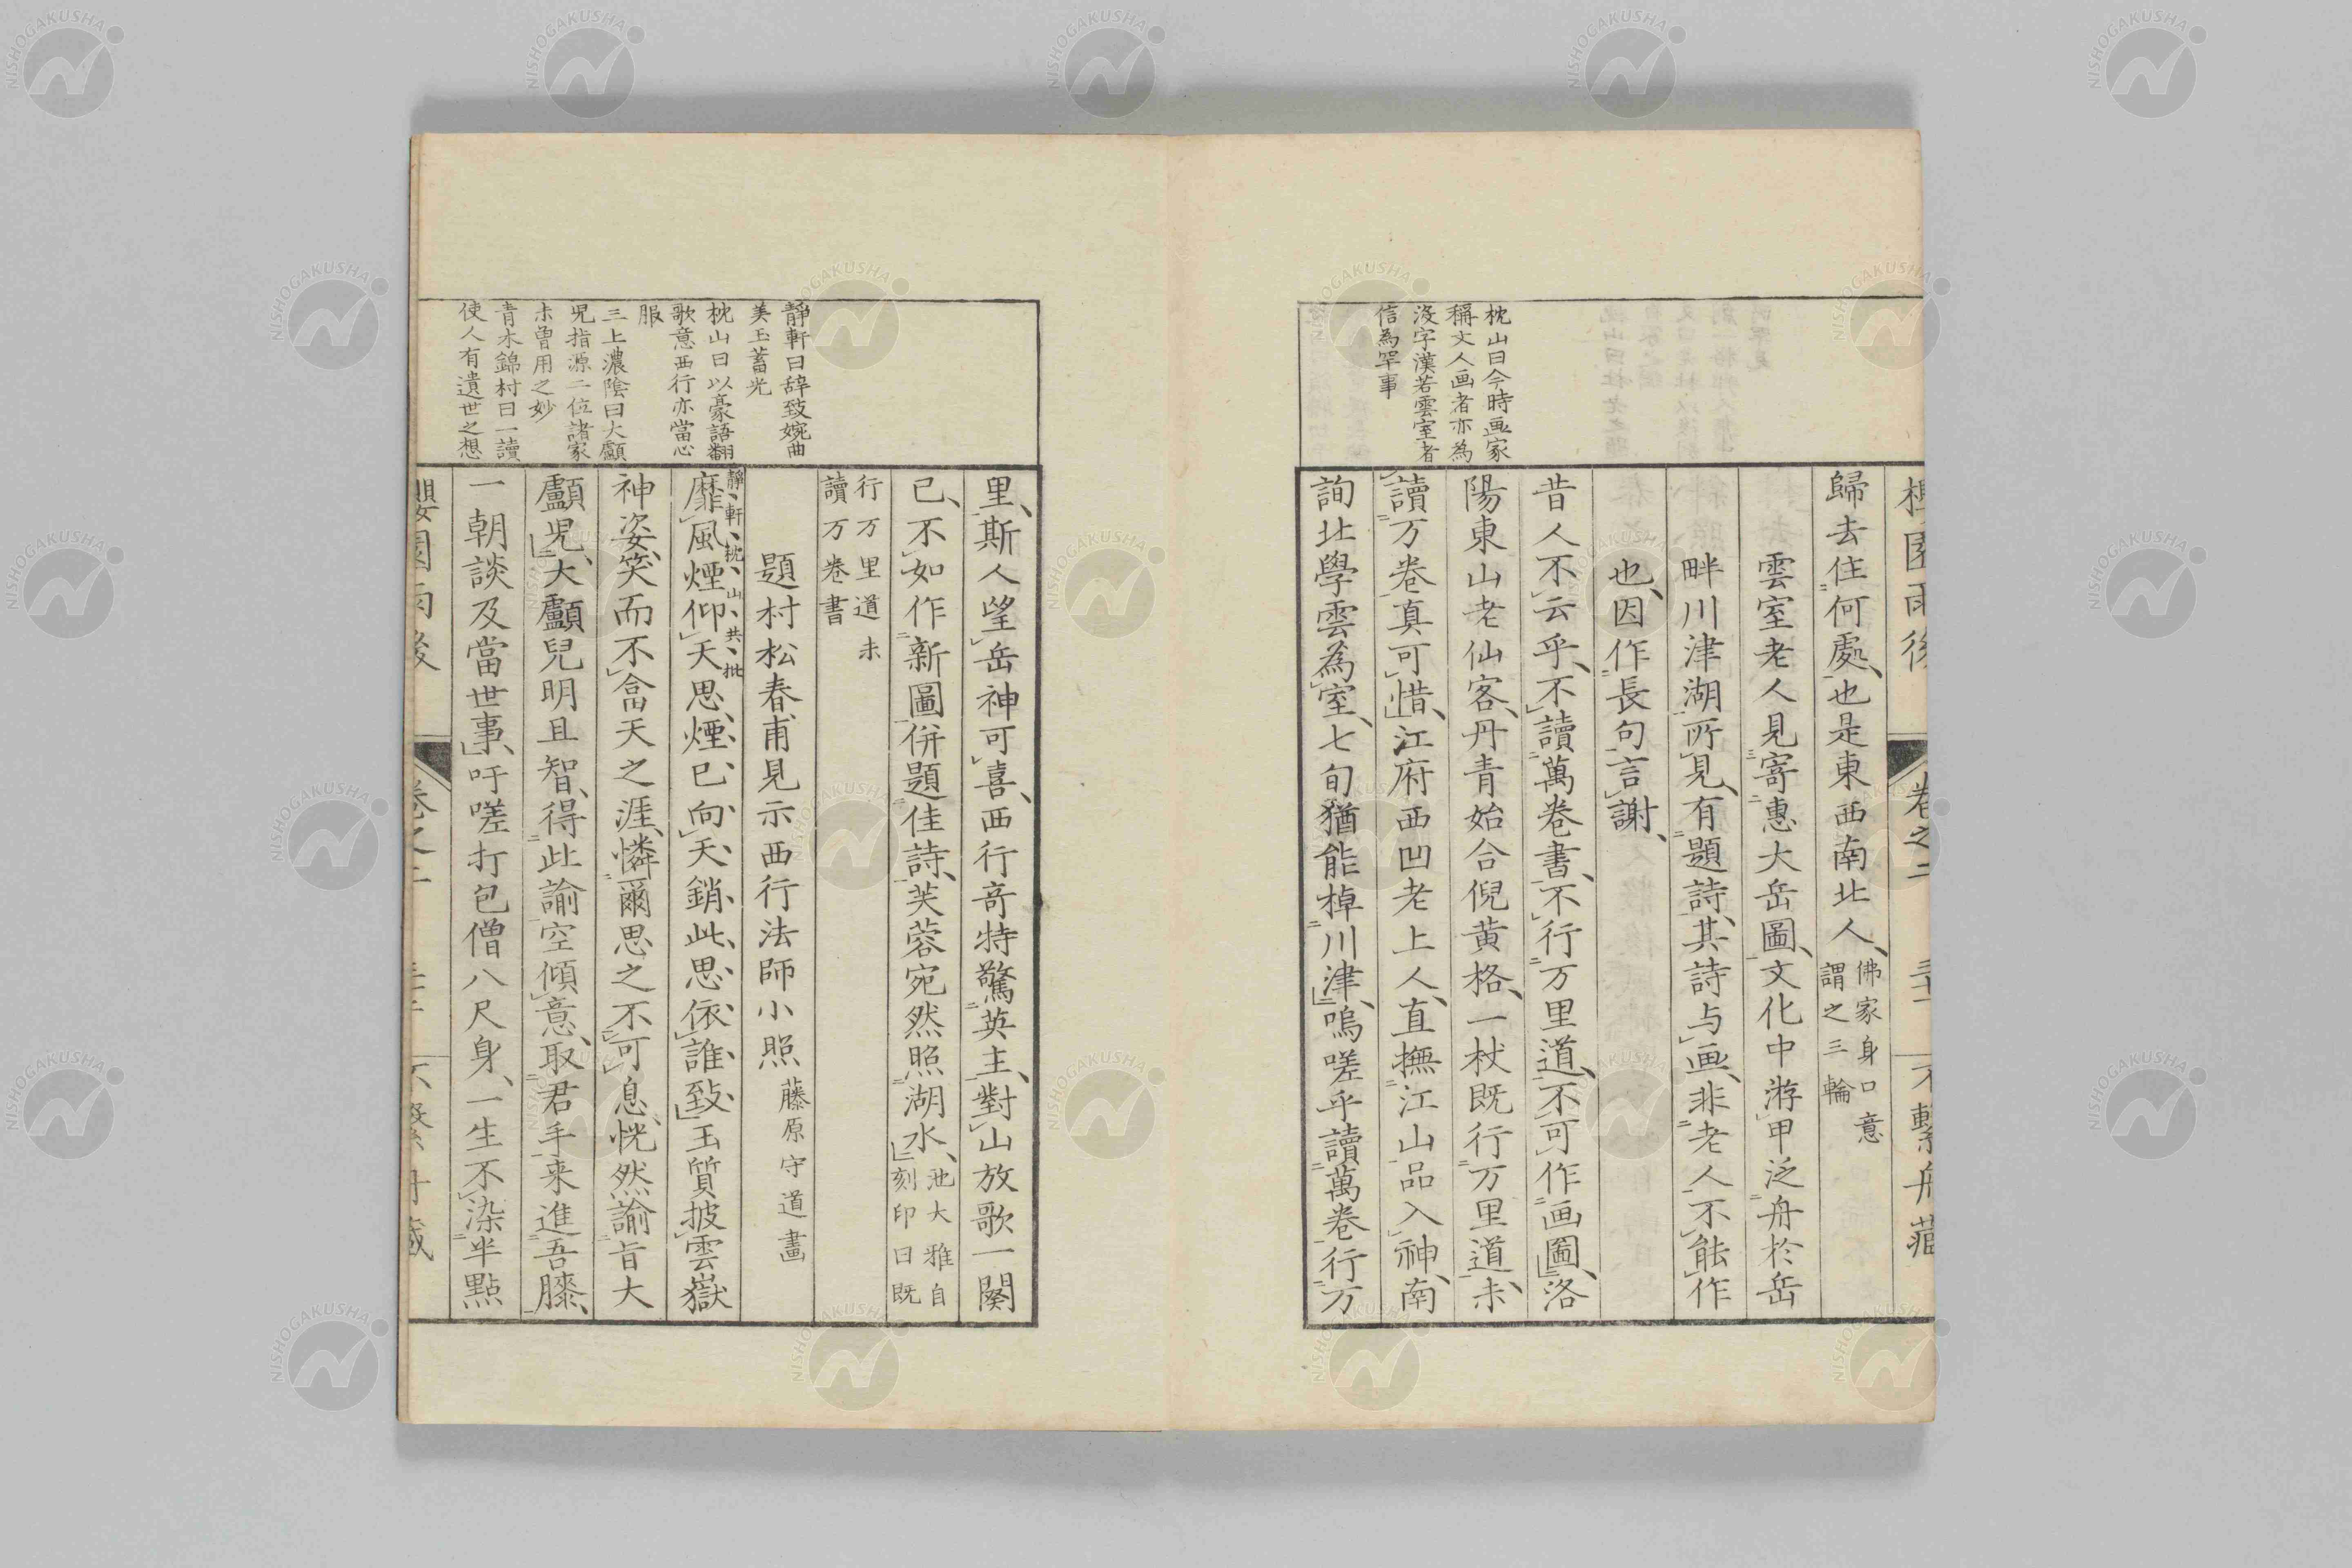 枕山曰今時画家
稱文人画者亦為
沒字漢若雲室者
信為罕事
歸去住何處也是東西南北人佛家身口意
謂之三輪
雲室老人見寄惠大岳圖文化中游甲泛舟於岳
畔川津湖所見有題詩其詩与画非老人不能作
也因作長句言謝
昔人不云乎不讀萬卷書不行万里道不可作画圖洛
陽東山老仙客丹青始合倪黄格一杖既行万里道未
讀万卷真可惜江府西凹老上人直撫江山品入神南
詢北學雲為室七旬猶能棹川津嗚嗟乎讀萬卷行万
靜軒曰辞致婉曲
美玉蓄光
枕山曰以豪語翻
歌意西行亦當心
服
三上濃陰曰大顱
児指源二位諸家
未曽用之妙
青木錦村曰一讀
使人有遺世之想
里斯人望岳神可喜西行奇特驚英主對山放歌一闋
已不如作新圖併題佳詩芙蓉宛然照湖水池大雅自
刻印曰既
行万里道未
讀万卷書
題村松春甫見示西行法師小照藤原守道畫
靜軒枕山共批
靡風煙仰天思煙已向天銷此思依誰致玉質披雲嶽
神姿笑而不畣天之涯憐爾思之不可息恍然諭旨大
顱児大顱兒明且智得此諭空傾意取君手来進吾膝
一朝談及當世事吁嗟打包僧八尺身一生不染半點